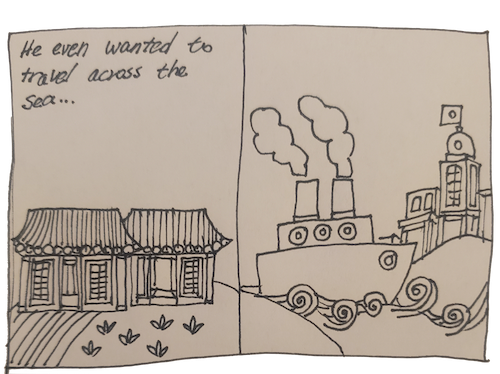 He even wanted to
travel across the
sea...